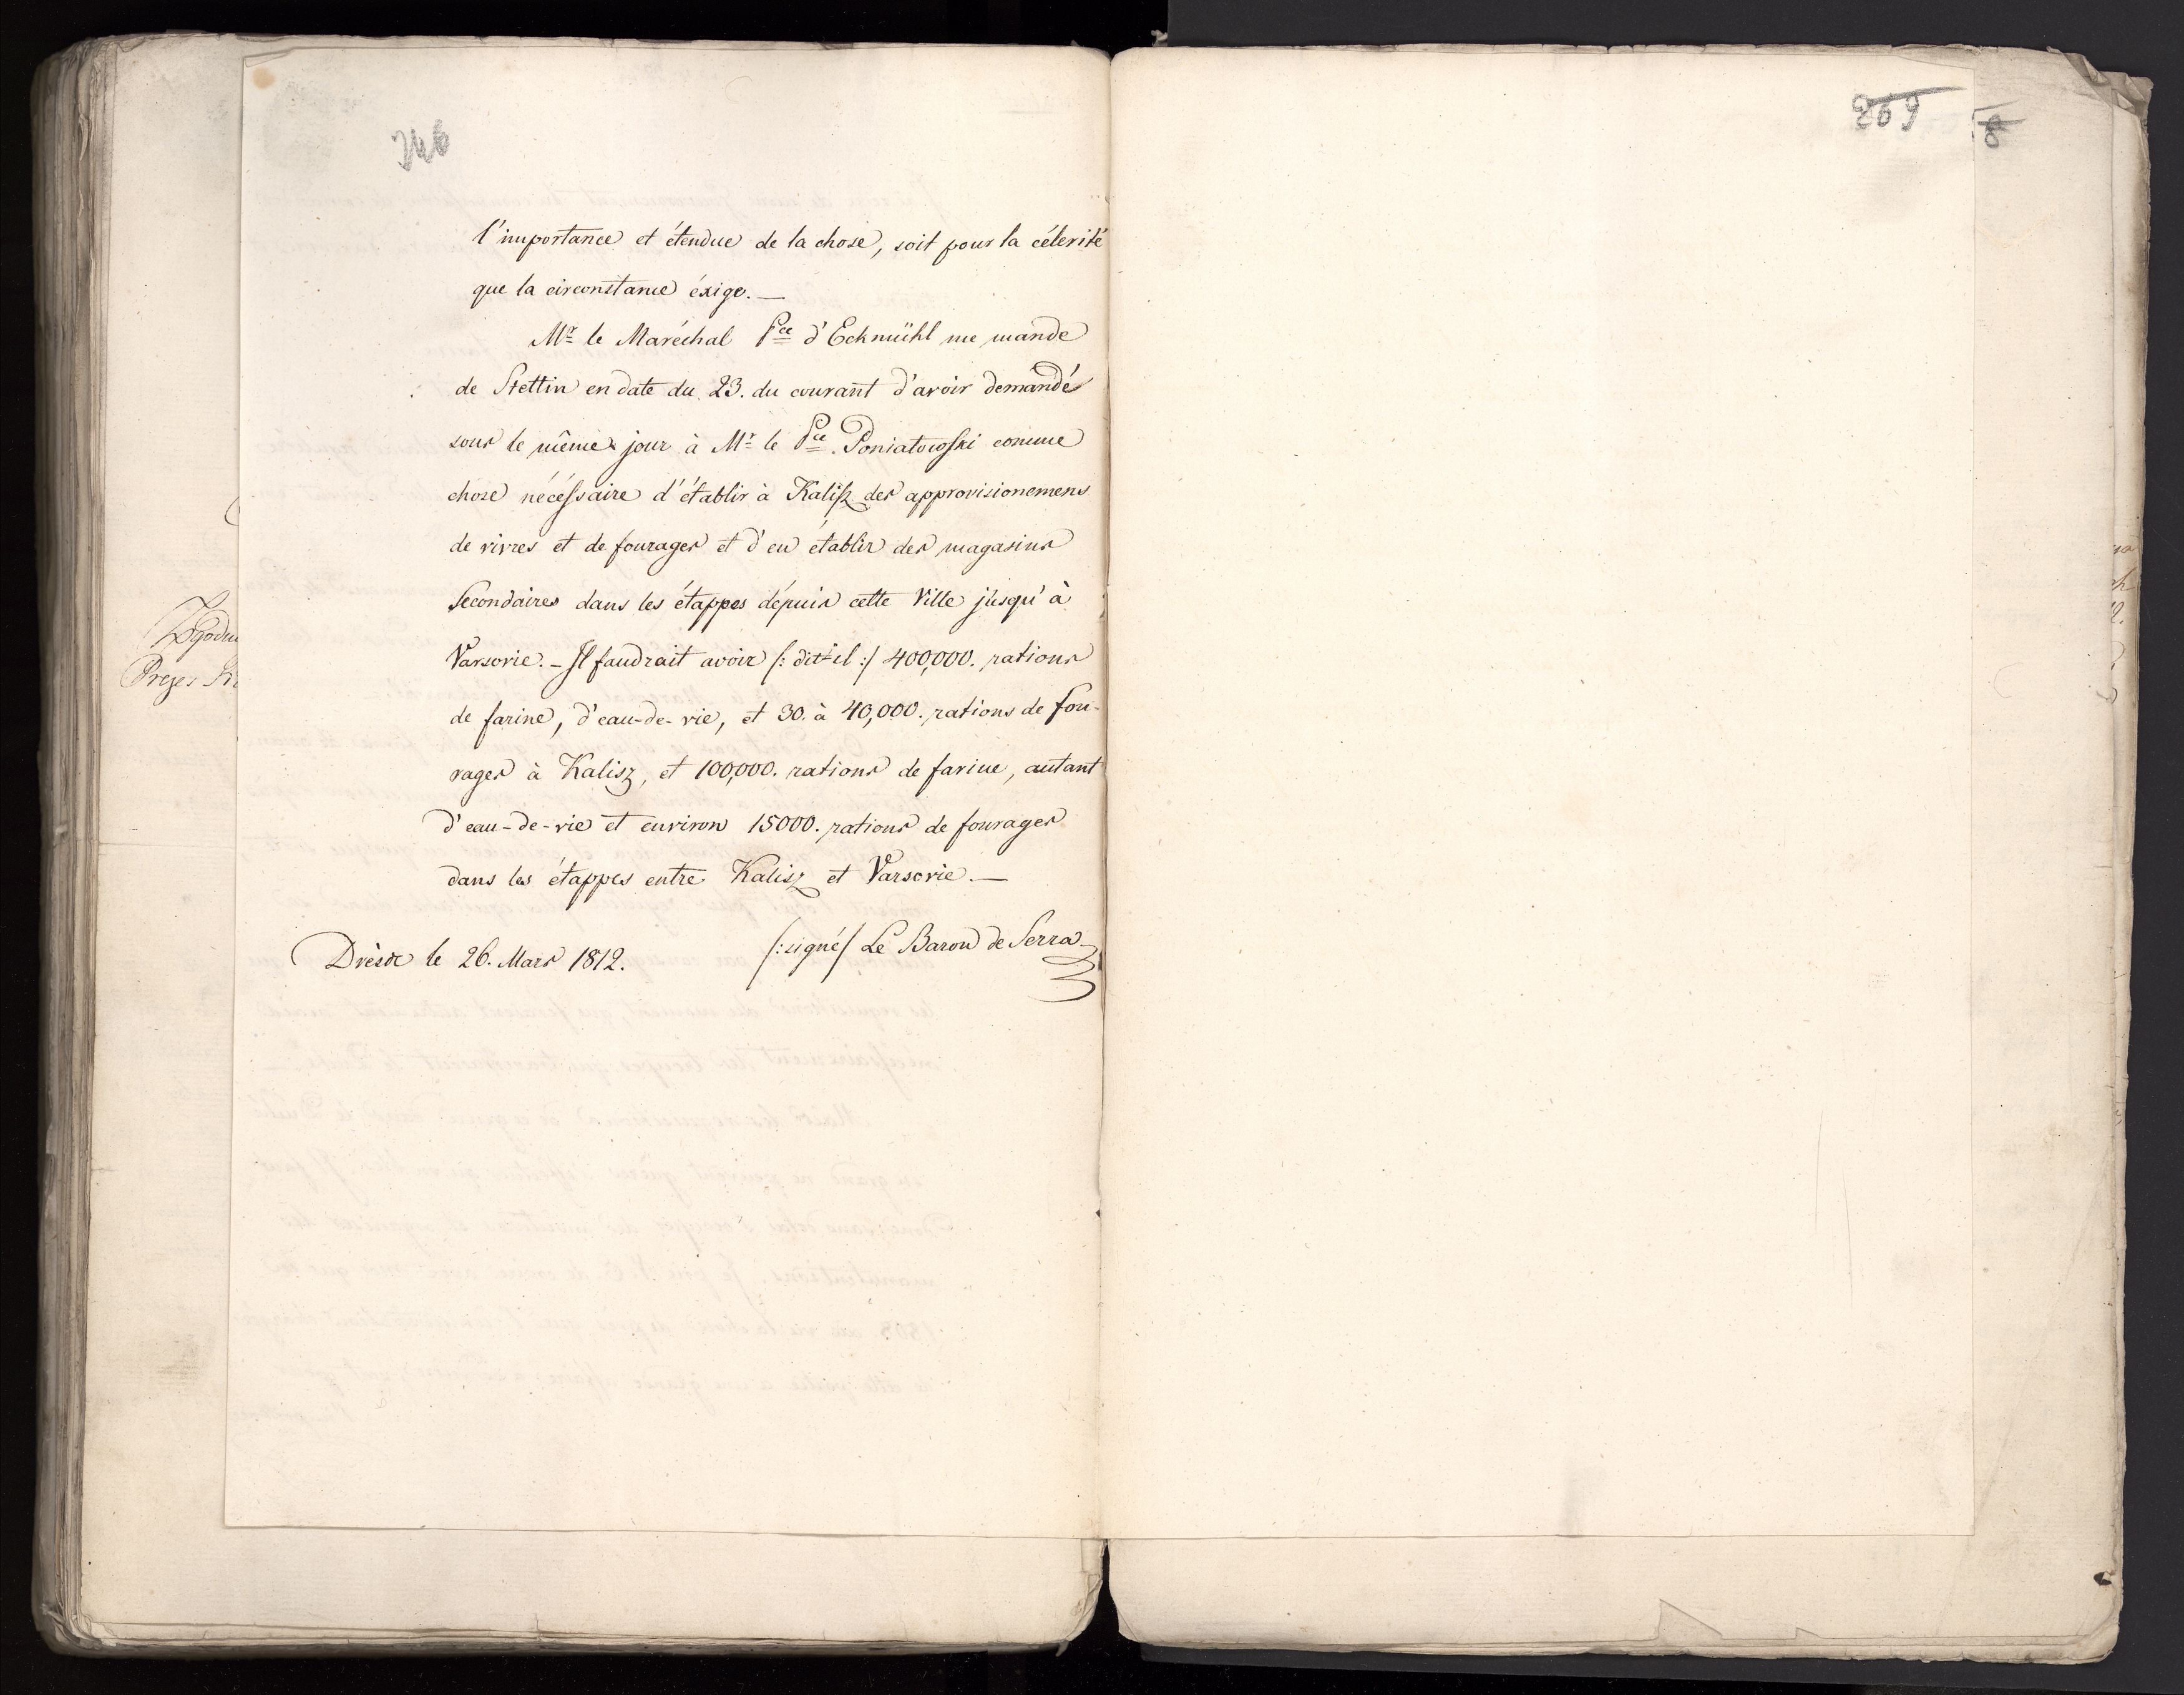 246
l'importance et étendue de la chose, soit pour la célerité
que la circonstance éxige. —
Mr le Maréchal Pce d'Eckmühl me mande
de Stettin en date du 23. du courant d'avoir demandé
sous le même jour à Mr le Pce. Poniatowski comme
chose nécéssaire d'établir à Kalisz des approvisionemens
de vivres et de fourages et d'en établir des magasins
Secondaires dans les étappes dépuis cette Ville jusqu'à
Varsovie. — Il faudrait avoir /: dit-il :/ 400,000. rations
de farine, d'eau-de-vie, et 30. à 40,000. rations de fou-
rages à Kalisz, et 100,000. rations de farine, autant
d'eau-de-vie et environ 15000. rations de fourages
dans les étappes entre Kalisz et Varsovie. —
/:signé/ Le Baron de Serra
Drèsde le 26. Mars 1812.
Prezes
269
8